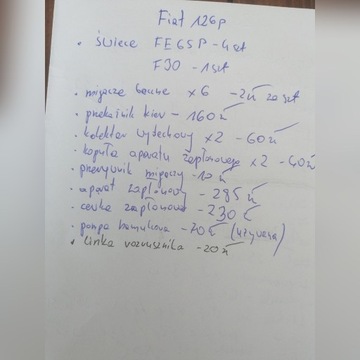 Fiat 126p
• świece FE65P - 4szt
F30 - 1szt
• migacze boczne x6 - 2zł za szt
• przekaźnik kier - 160zł
• kolektor wydechowy x2 - 60zł
• kopuła aparatu zapłonowego x2 - 40zł
• przerywnik migaczy - 10zł
• aparat zapłonowy - 285zł
• cewka zapłonowa - 230zł
• pompa hamulcowa - 70zł (używana)
• linka rozrusznika - 20zł